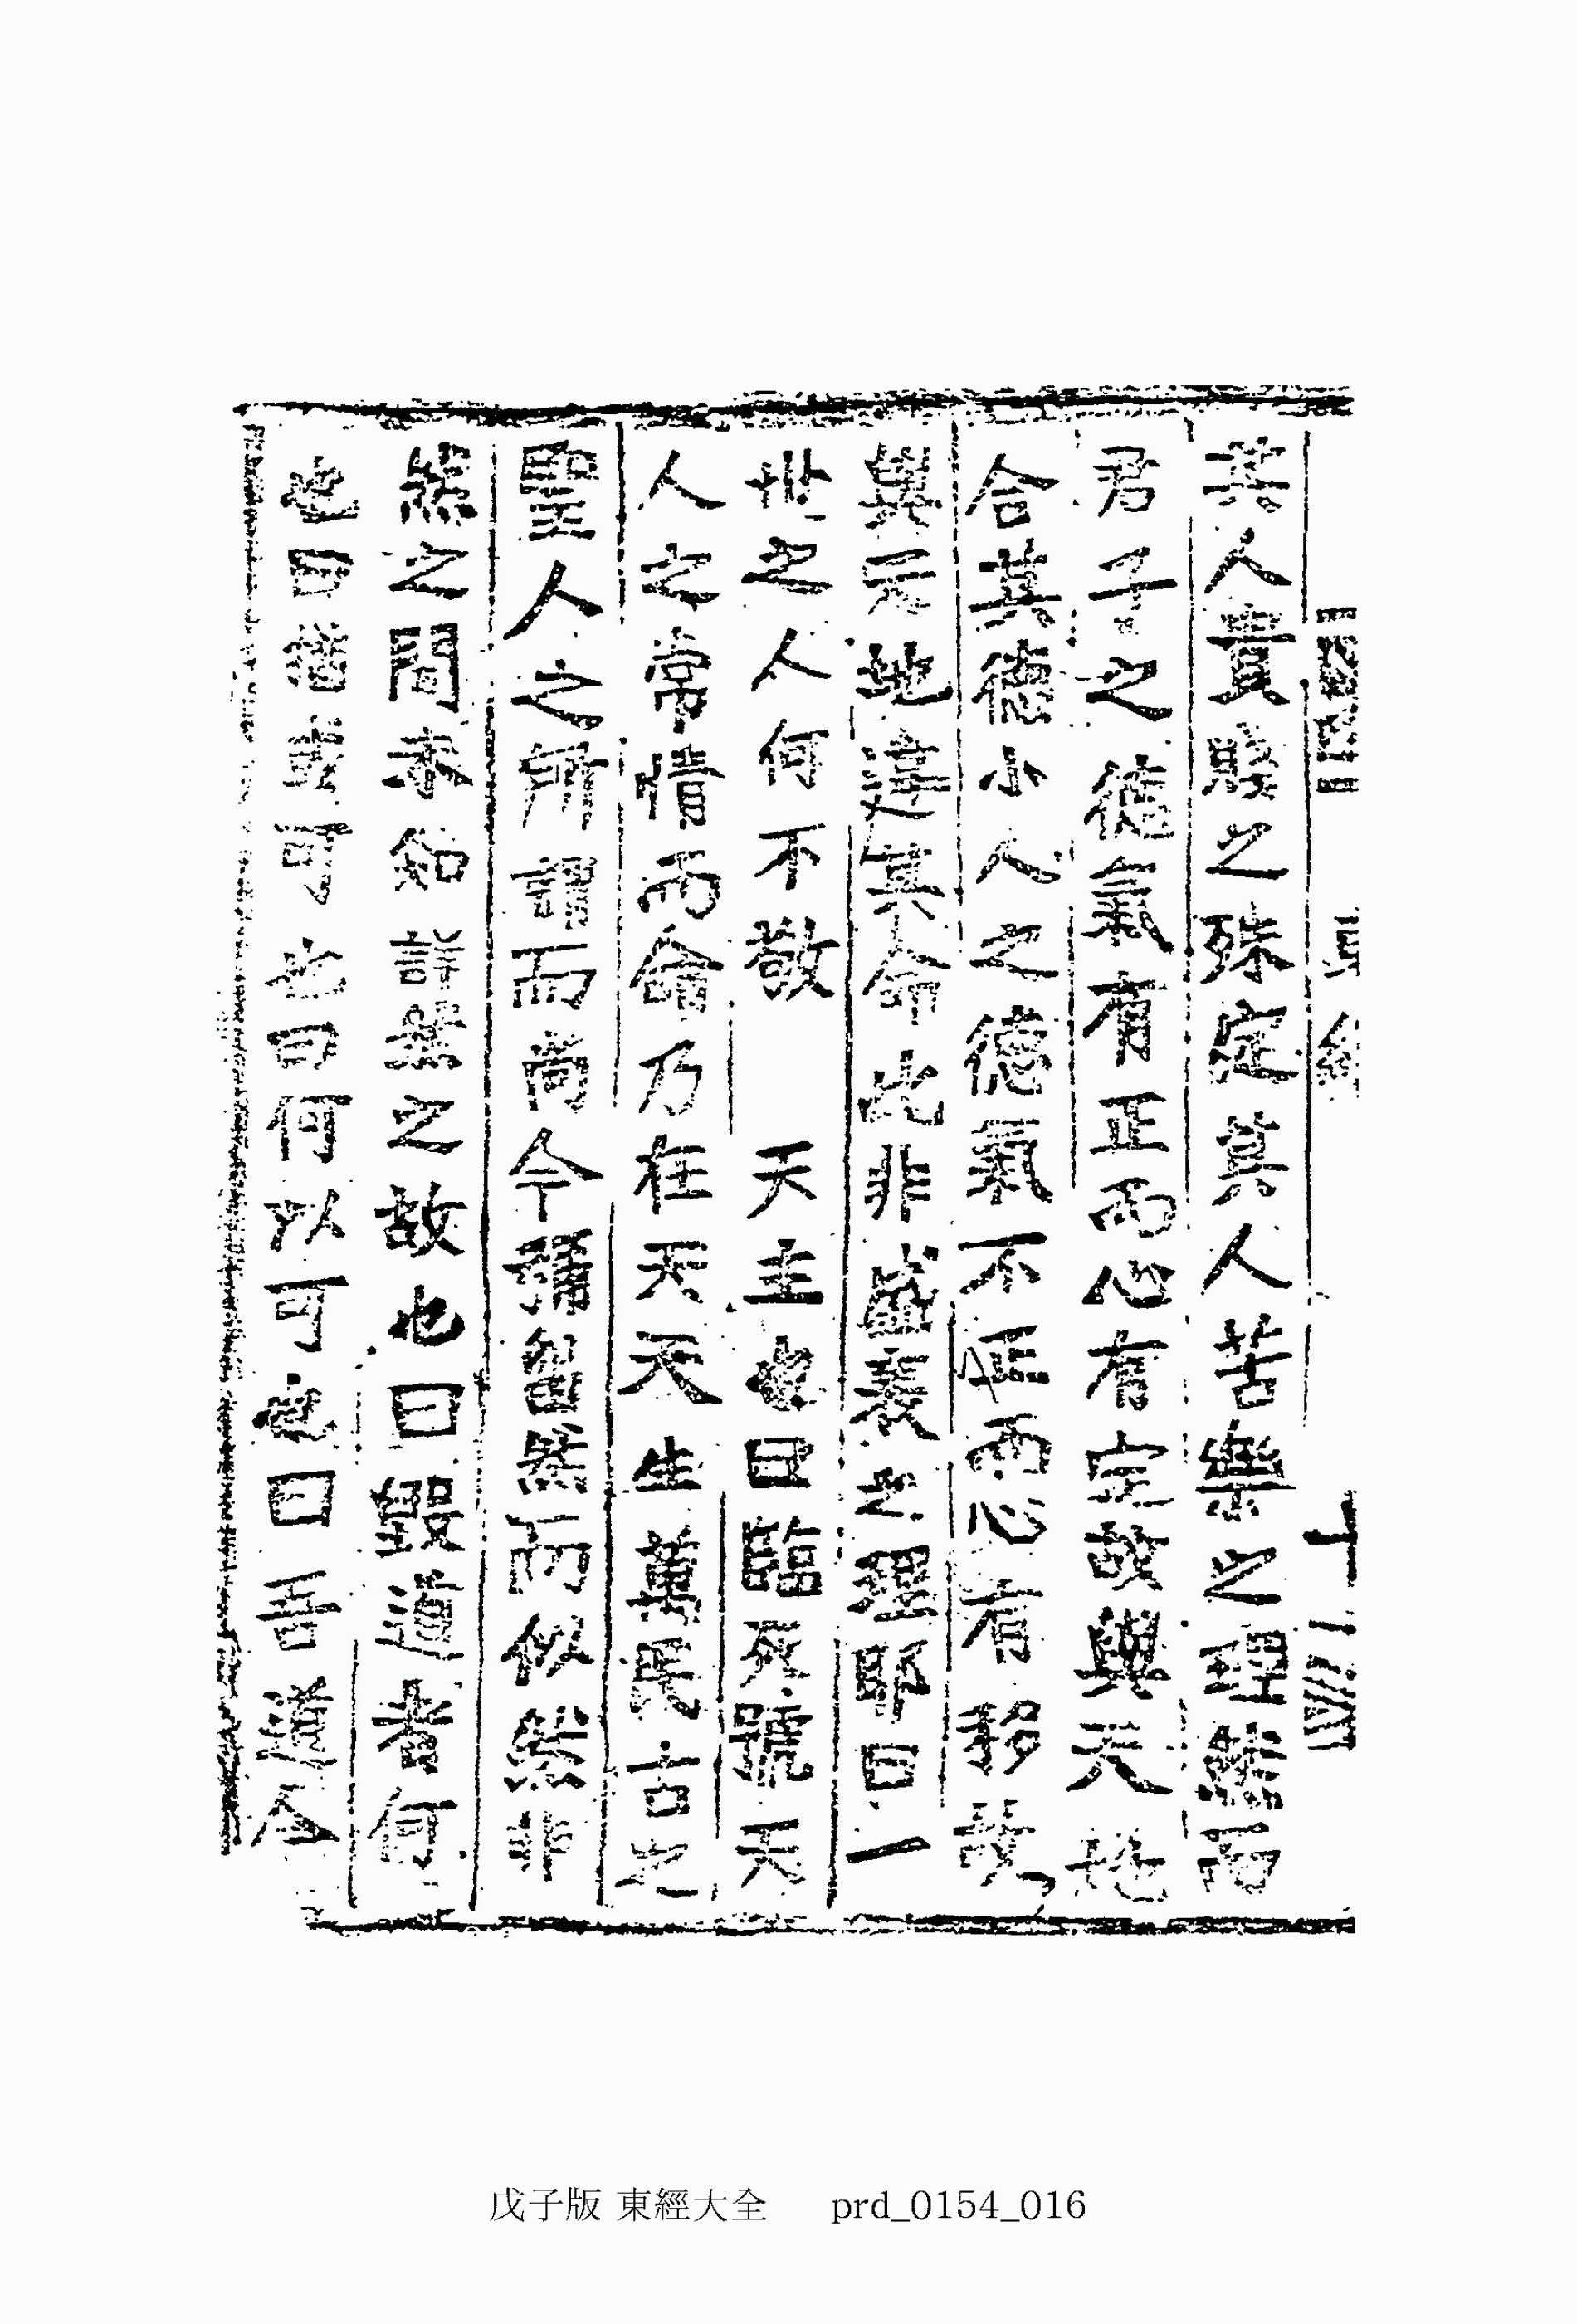 其人貴賤之殊定其人苦樂之理然而
君子之德氣有正而心有定故與天地
合其德小人之德氣不正而心有移故
與天地違其命此非盛衰之理耶曰一
世之人何不敬　天主也曰臨死號天
人之常情而命乃在天天生萬民古之
聖人之所謂而尙今彌留然而似然非
然之間未知詳然之故也曰毁道者何
也曰猶或可也曰何以可也曰吾道今
十
戊子版 東經大全 prd_0154_016